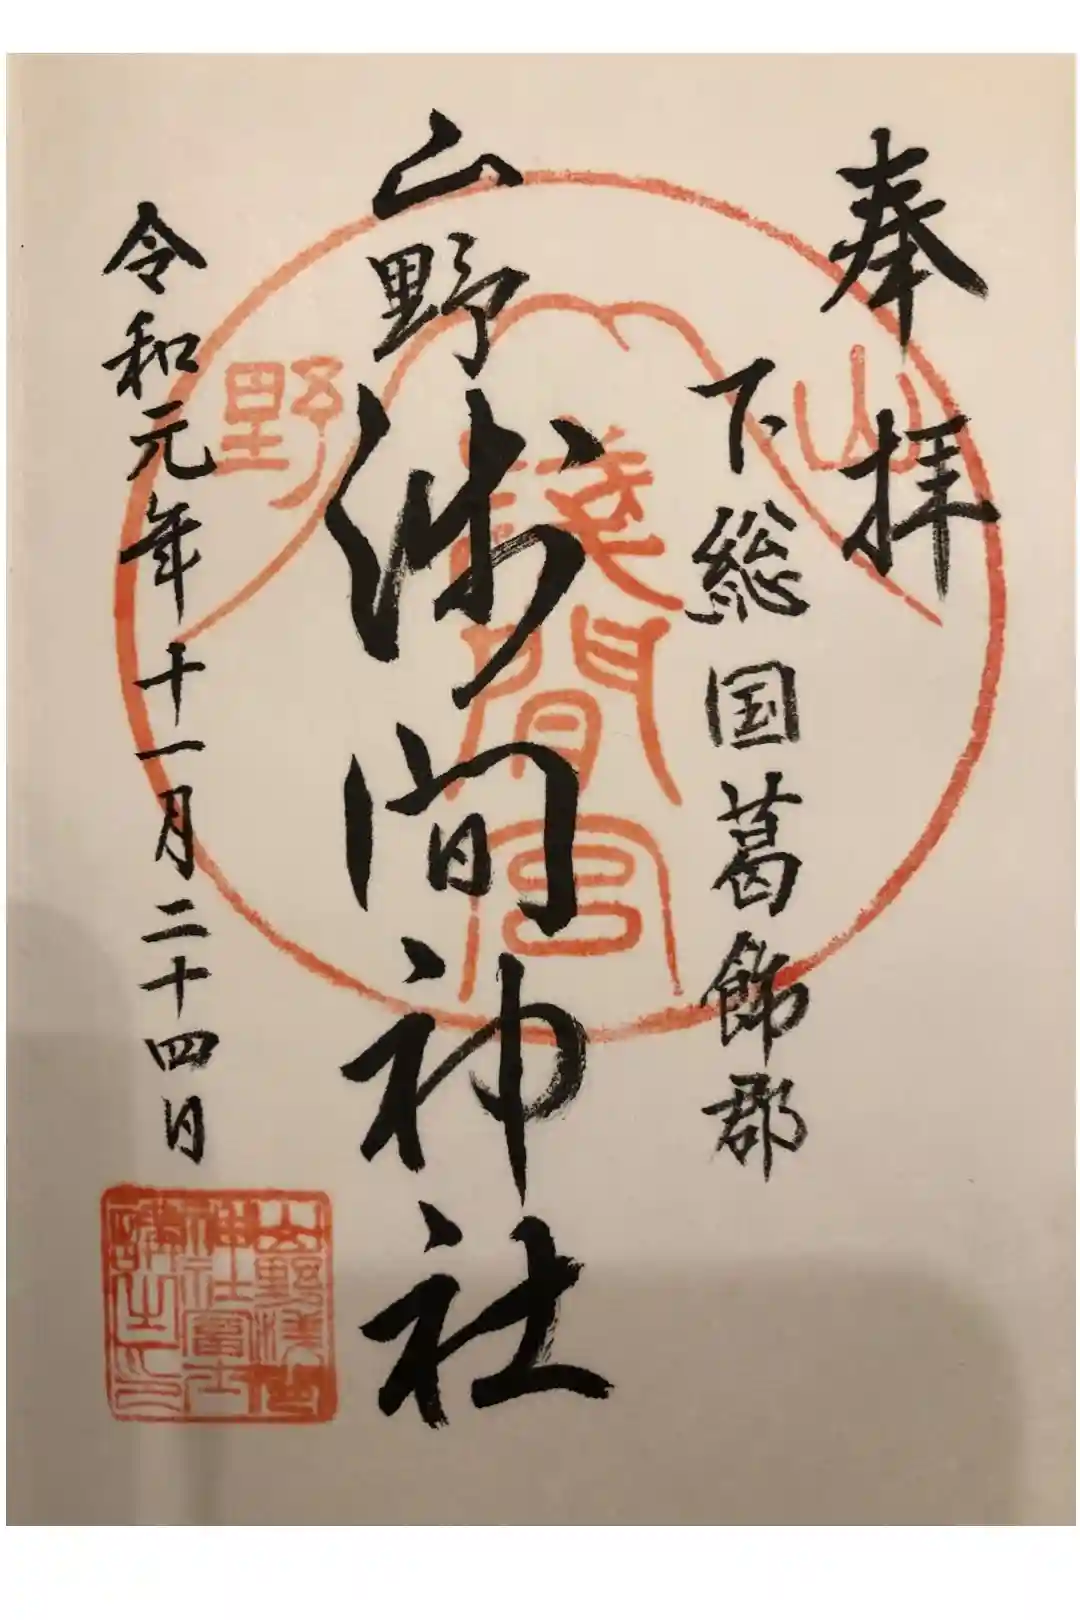 奉拝
下総国葛飾郡
山野浅間神社
令和元年十一月二十四日
山野
淺間宮